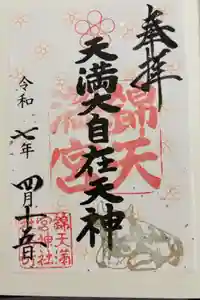 奉拝
天満大自在天神
令和七年四月十五日
錦天満宮
錦天満宮神社